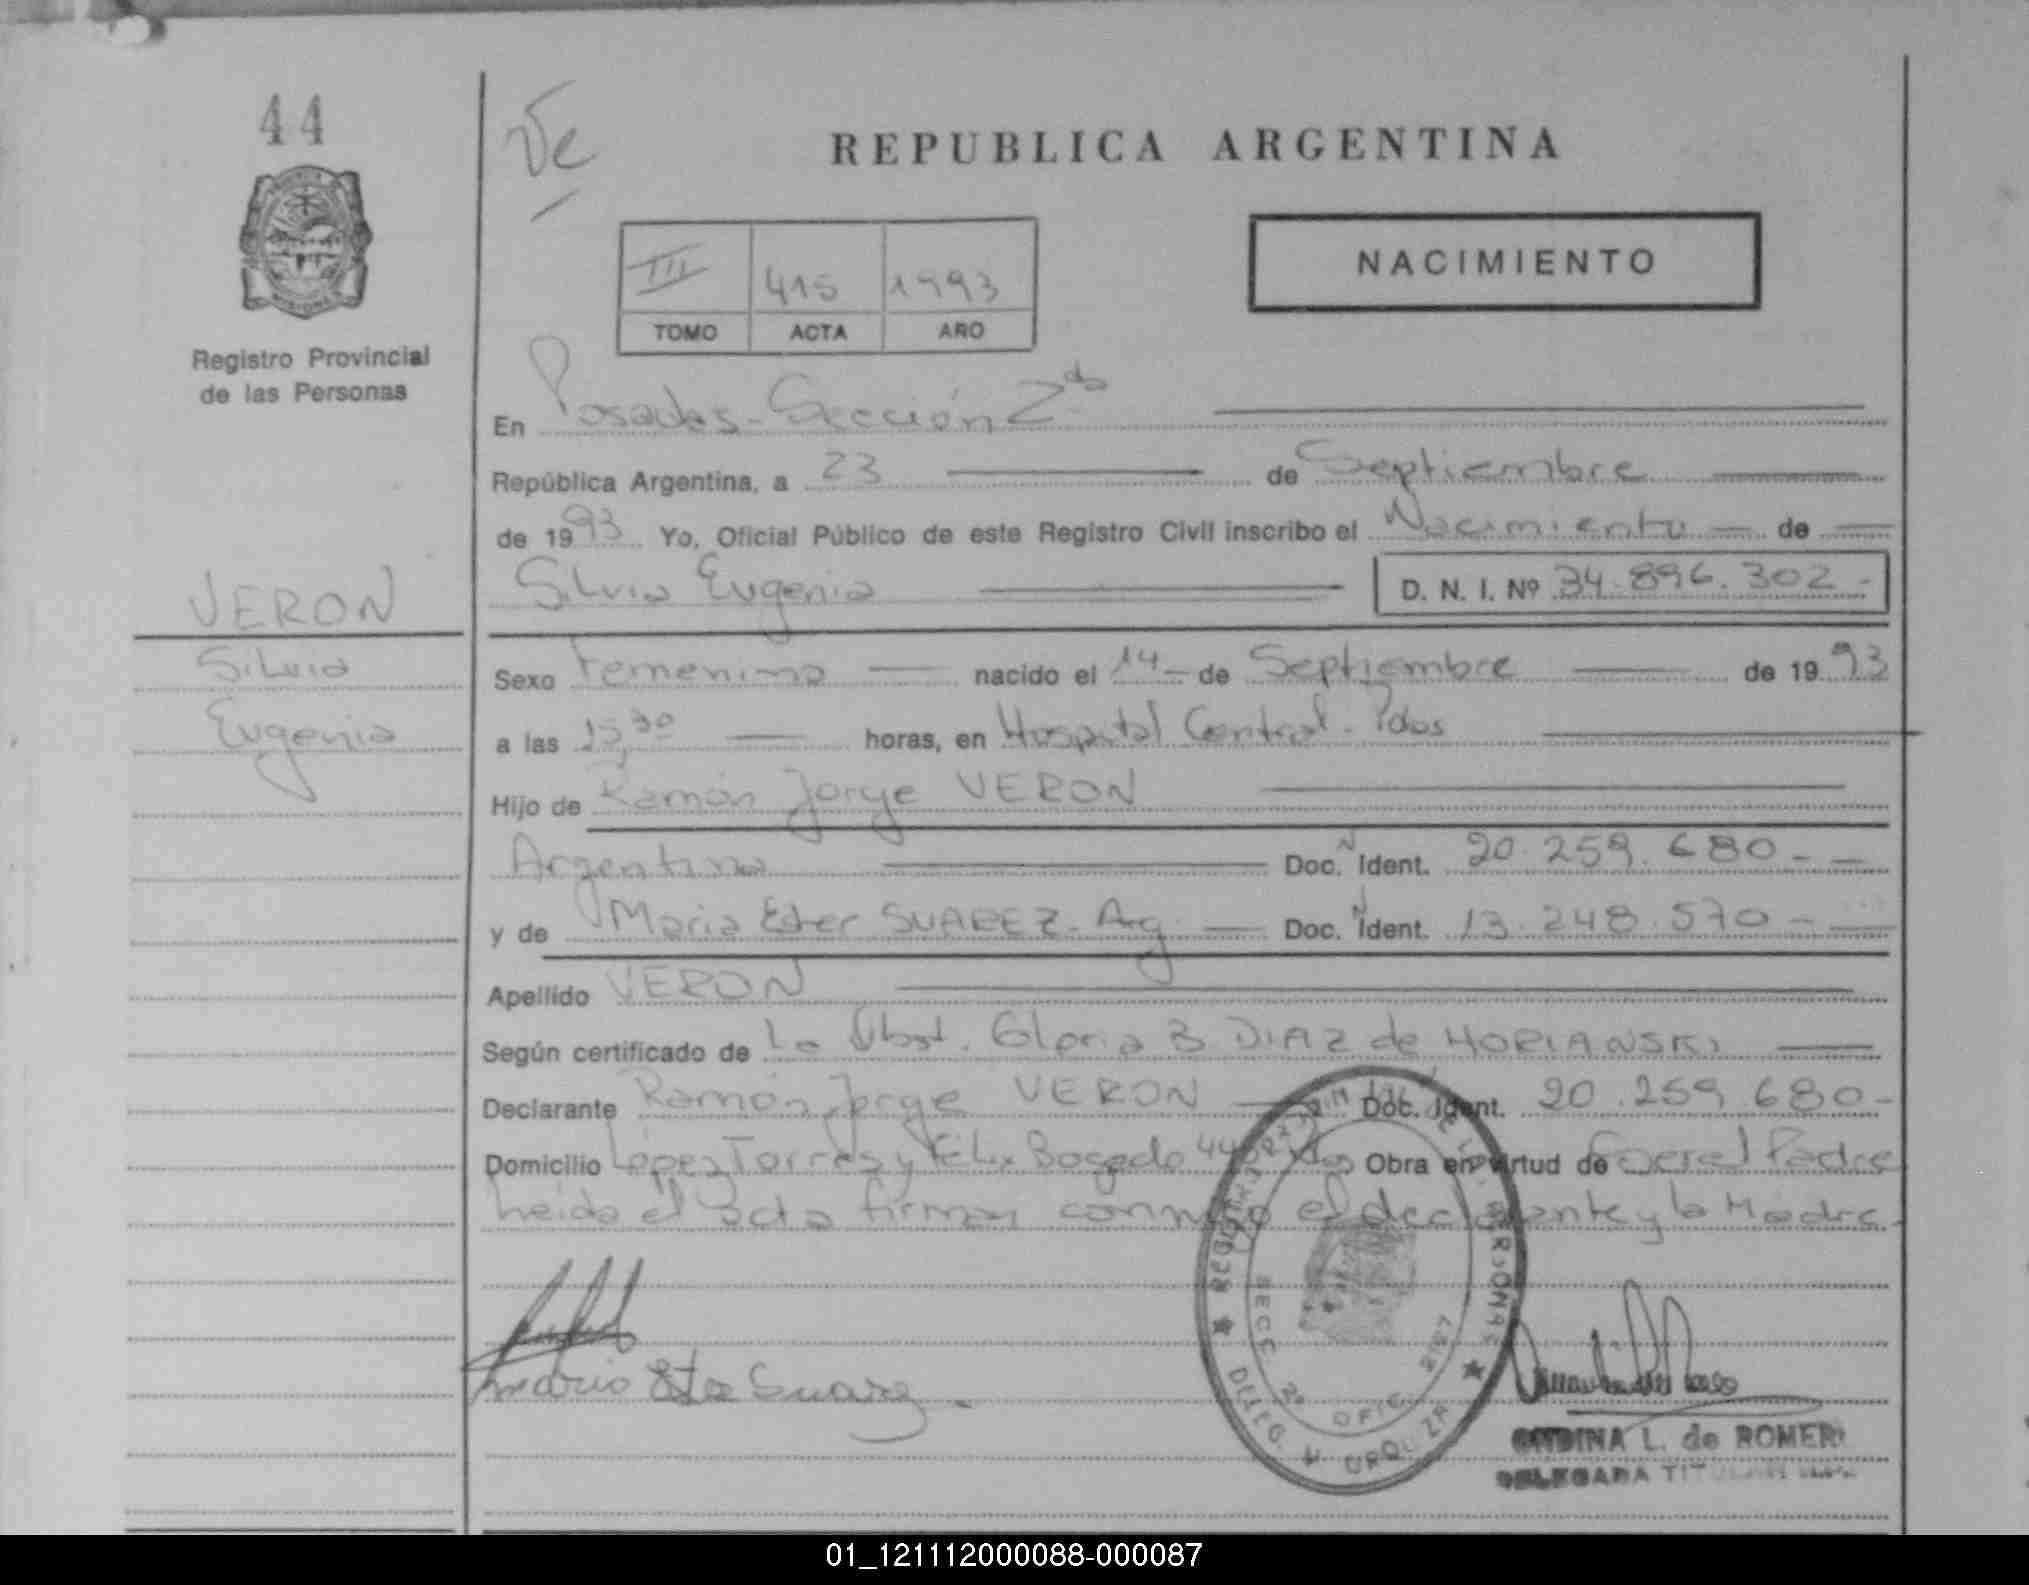 44
Ve
REPUBLICA ARGENTINA
NACIMIENTO
III 415 1993
TOMO ACTA AÑO
Registro Provincial
de las Personas
En Posadas - Sección 2da
República Argentina, a 23 de Septiembre
de 1993 Yo, Oficial Público de este Registro Civil inscribo el Nacimiento de
Silvia Eugenia D. N. I. Nº 34.896.302-
VERON
Silvia
Eugenia
Sexo Femenino nacido el 14 de Septiembre de 1993
a las 15,30 horas, en Hospital Central - Pdas
Hijo de Ramón Jorge VERON
Argentina Doc. Ident. 20.259.680-
y de Maria Ester SUAREZ - Arg Doc. Ident. 13.248.570-
Apellido VERON
Según certificado de La Obst. Gloria B DIAZ de HORIANSKI
Declarante Ramón Jorge VERON Doc. Ident. 20.259.680-
Domicilio López Torres y Felix Bogado Obra en virtud de Padre
Leída el acta firman conmigo el declarante y la Madre
Suarez
DELEG. V. URQUIZA
SECC. 2º OFIC. 2157
L. de ROMER
DELEGADA TITULAR
01_121112000088-000087